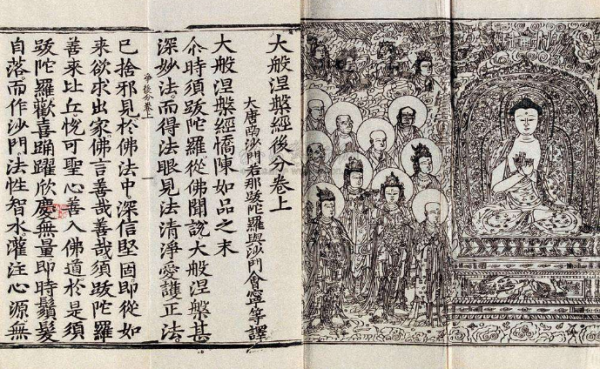 大般涅槃經後分卷上
大唐沙門若那跋陀羅與沙門會寧等譯
大般涅槃經憍陳如品之末
尒時須跋陀羅從佛聞說大般涅槃甚
深妙法而得法眼見法清淨愛護正法
後分卷上
一
已捨邪見於佛法中深信堅固即從如
來欲求出家佛言善哉善哉須跋陀羅
善來比丘悅可聖心善入佛道於是須
跋陀羅歡喜踊躍欣慶無量即時鬚髮
自落而作沙門法性智水灌注心源無